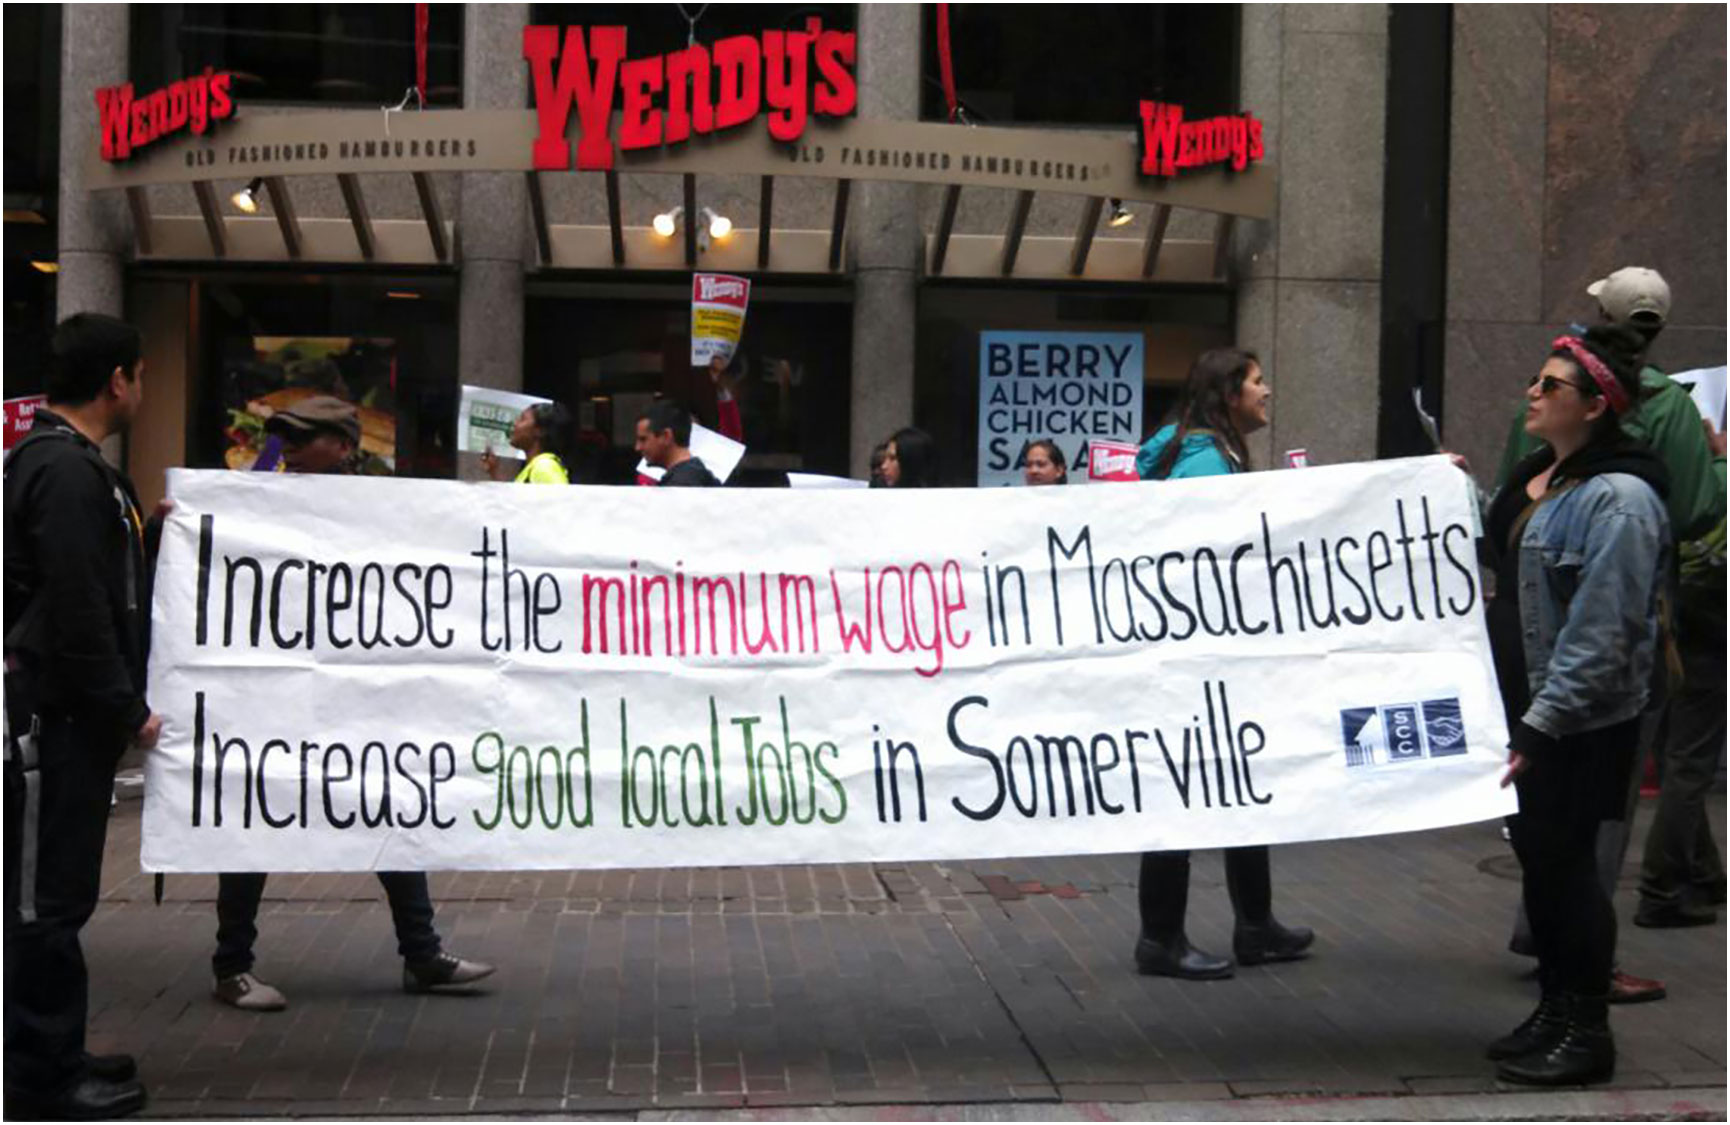 Wendy's
Wendy's
Wendy's
OLD FASHIONED HAMBURGERS
OLD FASHIONED HAMBURGERS
Wendy's
BERRY
ALMOND
CHICKEN
Wendy's
Increase the minimum wage in Massachusetts
Increase good local Jobs in Somerville
SCC